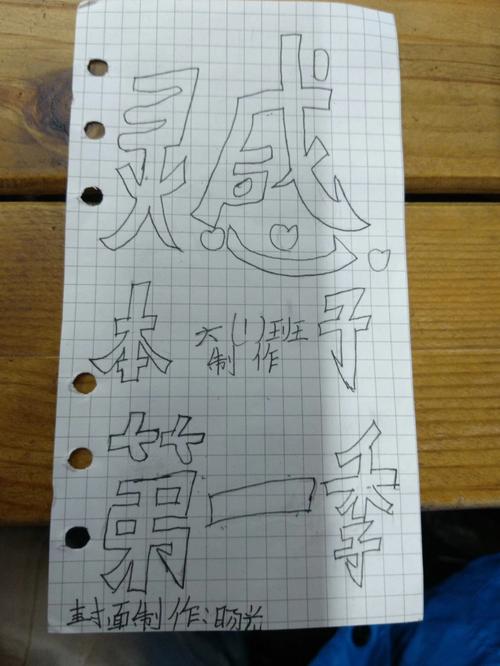 灵感
本子
六(1)班
制作
第一季
封面制作:旸光